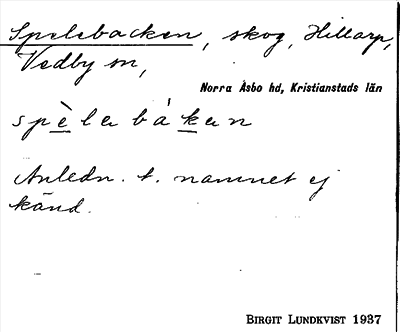 Spelebacken, skog, Hillarp,
Vedby sn,
Norra Åsbo hd, Kristianstads län
spè̱labáḵan
Anledn. t. namnet ej
känd.
BIRGIT LUNDKVIST 1937